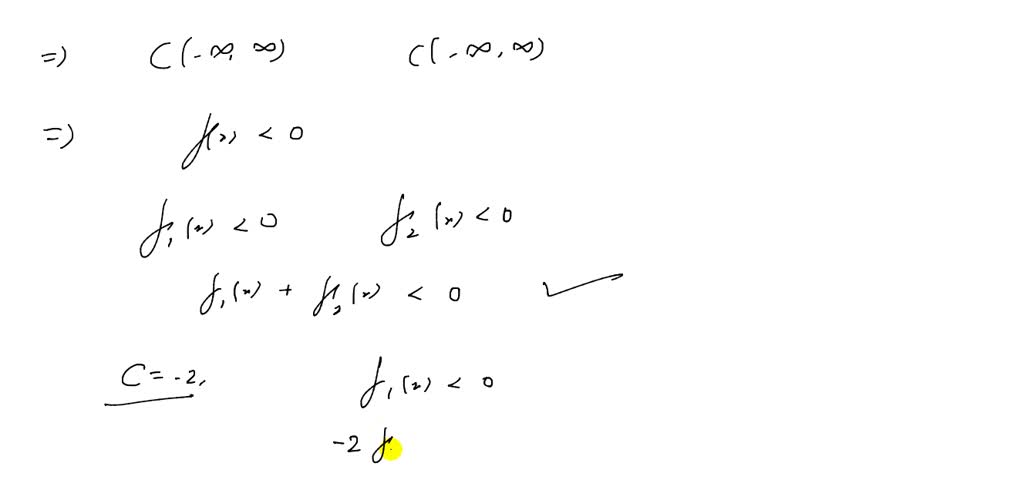 => C(-∞, ∞) C(-∞, ∞)
=> f(x) < 0
f₁(x) < 0 f₂(x) < 0
f₁(x) + f₂(x) < 0 ✓
C = -2, f₁(x) < 0
-2 f